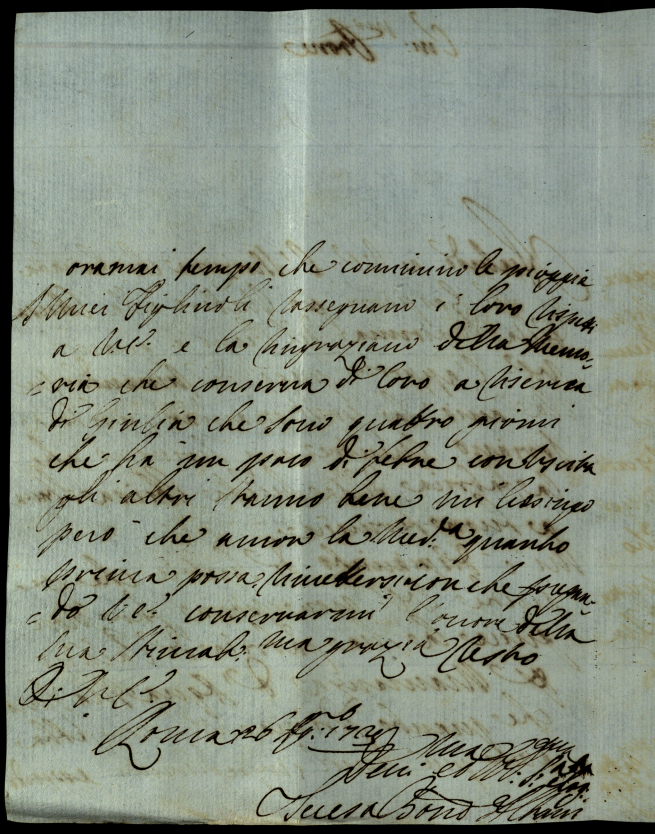 oramai tempo che cominino le pioggie
Miei Figliuoli rassegnano i loro rispetti
a V.E. e la ringraziano della Memo-
-ria che conserva di loro a riserva
di Giulia che sono quattro giorni
che hà un poco di febre con
gli altri stanno bene mi lusingo
però che ancor la Med.a quanto
prima possa rimettersi con che pregan-
-do V.E. conservarmi l'onore della
sua stimab. ma grazia resto
Di V.E.
Roma 26
Teresa